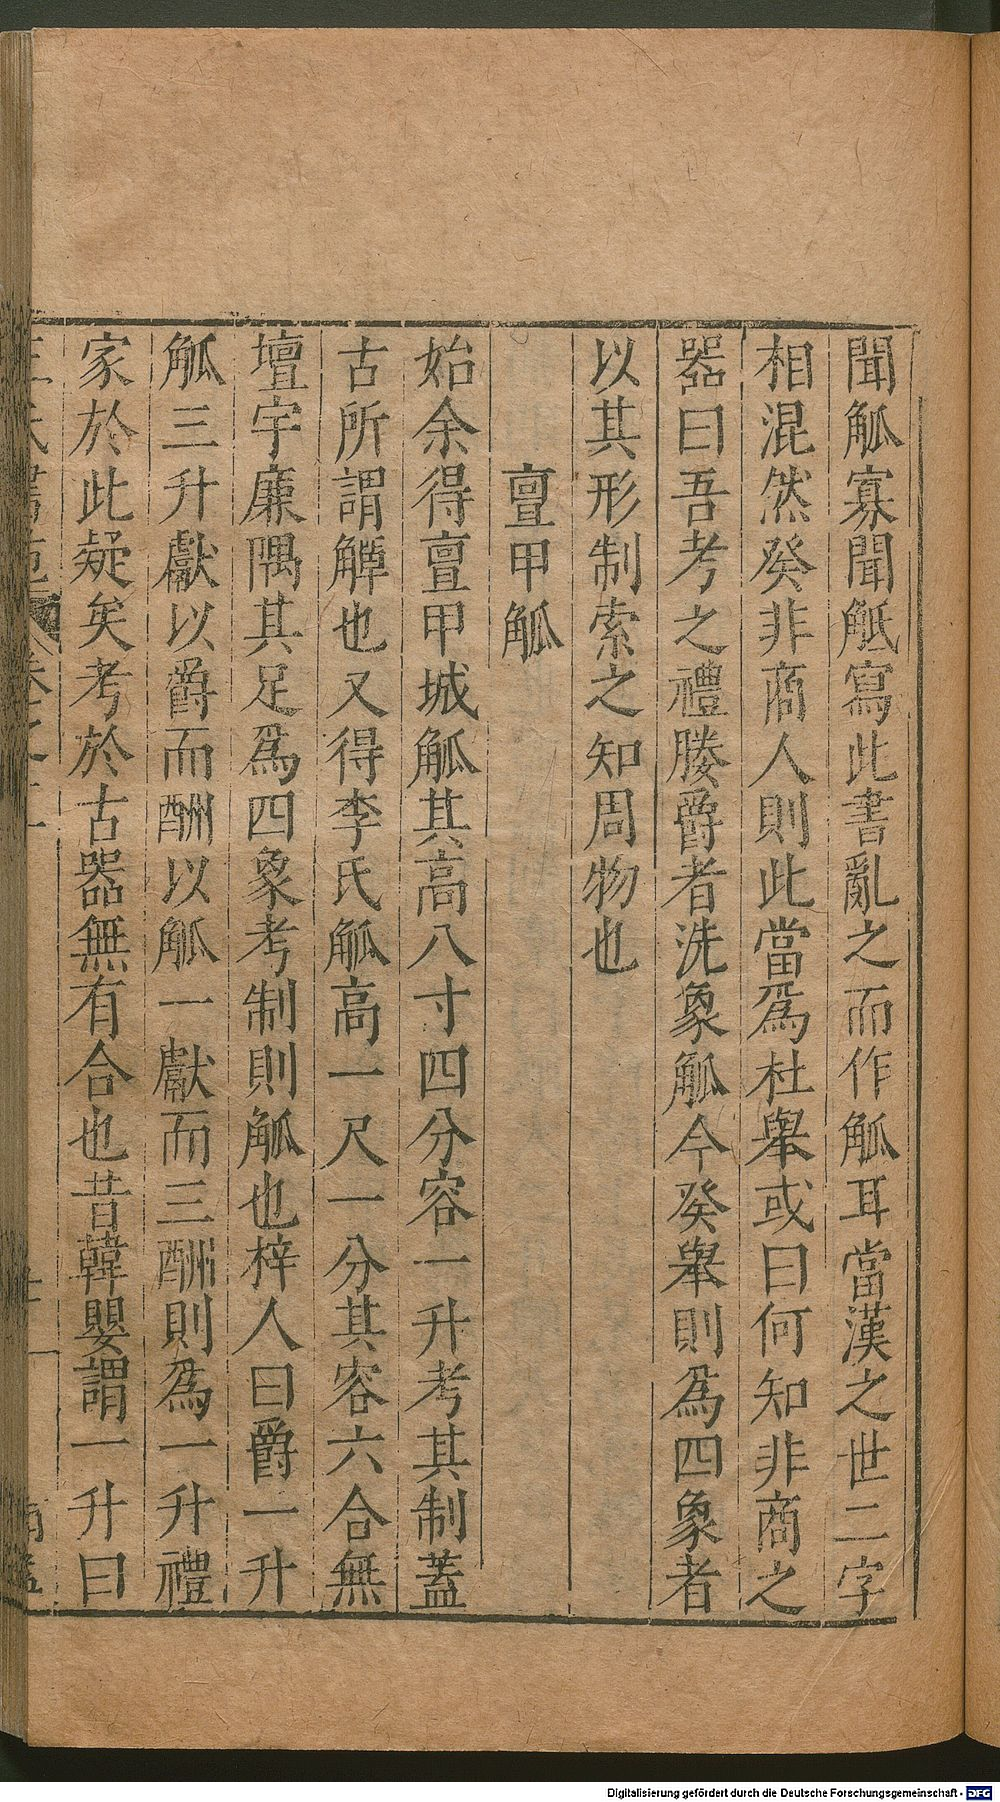 聞觚寡聞觝寫此書亂之而作觚耳當漢之世二字
相混然癸非商人則此當爲杜舉或曰何知非商之
器曰吾考之禮媵爵者洗象觚今癸舉則爲四象者
以其形制索之知周物也
亶甲觚
始余得亶甲城觚其高八寸四分容一升考其制蓋
古所謂觶也又得李氏觚高一尺一分其容六合無
壇宇廉隅其足爲四象考制則觚也梓人曰爵一升
觚三升獻以爵而酬以觚一獻而三酬則爲一升禮
家於此疑矣考於古器無有合也昔韓嬰謂一升曰
Digitalisierung gefördert durch die Deutsche Forschungsgemeinschaft - DFG